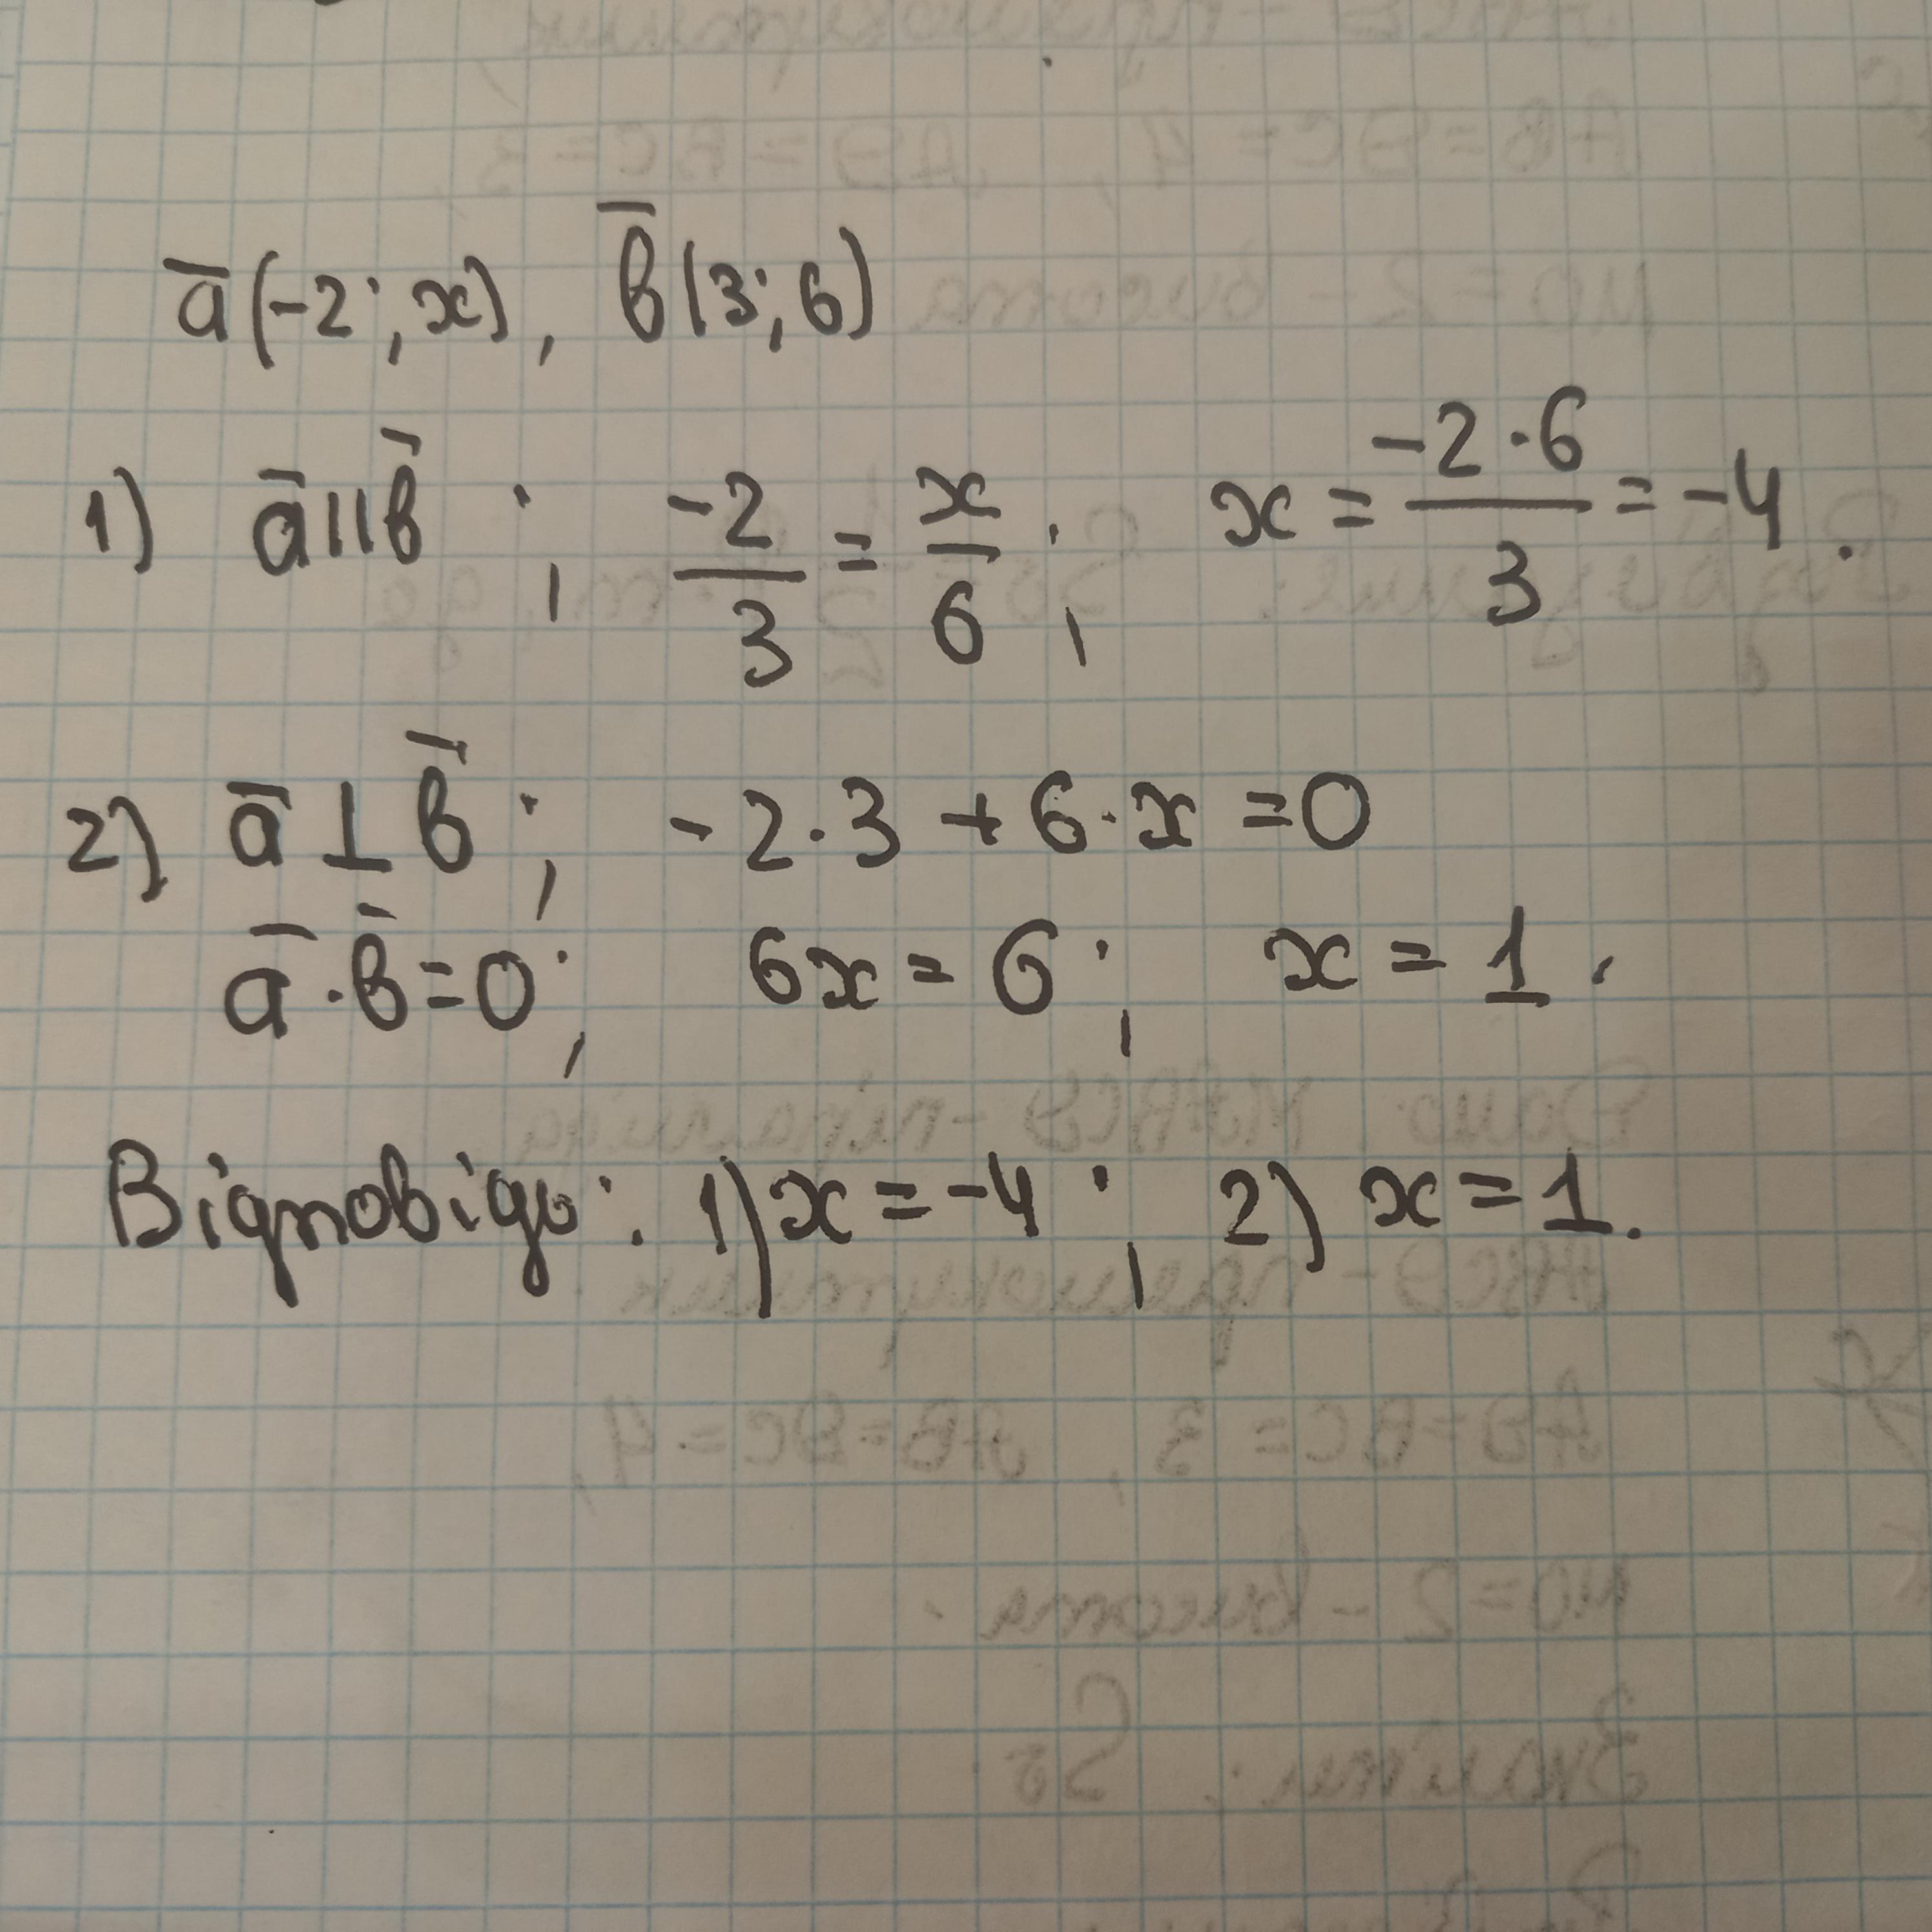 a̅(-2; x), b̅(3; 6)
1) a̅ || b̅; -2/3 = x/6; x = -2·6/3 = -4.
2) a̅ ⊥ b̅; -2·3 + 6·x = 0
a̅·b̅ = 0; 6x = 6; x = 1.
Відповідь: 1) x = -4; 2) x = 1.